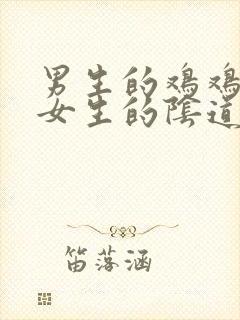 男生的鸡鸡
女生的陰道
笛落涵